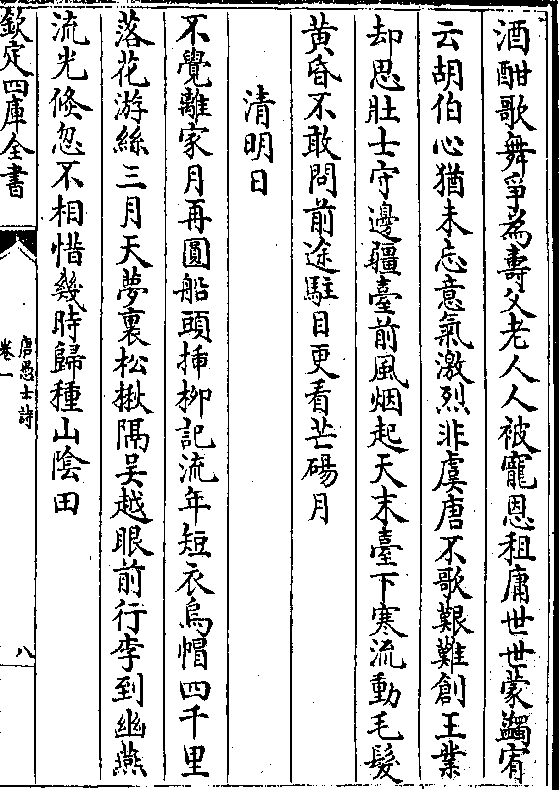 酒酣歌舞爭為壽父老人人被寵恩租庸世世蒙蠲宥
云胡伯心猶未忘意氣激烈非虞唐不歌艱難創王業
却思壯士守邊疆臺前風烟起天末臺下寒流動毛髮
黄昏不敢問前途駐目更看芒碭月
清明日
不覺離家月再圓船頭挿栁記流年短衣烏帽四千里
落花游絲三月天夢裏松揪隔吴越眼前行李到幽燕
流光倐忽不相惜幾時歸種山陰田
欽定四庫全書
唐愚士詩
卷一
八